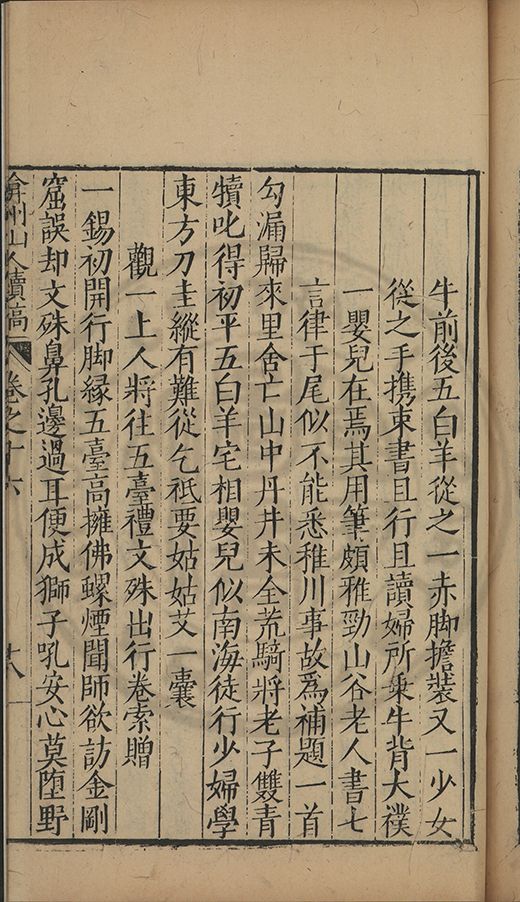 牛前後五白羊從之一赤脚擔裝又一少女
從之手携束書且行且讀婦所乗牛背大襆
一嬰兒在焉其用筆頗雅勁山谷老人書七
言律于尾似不能悉稚川事故爲補題一首
勾漏歸來里舍亡山中丹井未全荒騎將老子雙青
犢叱得初平五白羊宅相嬰兒似南海徒行少婦學
東方刀圭縱有難從乞祇要姑姑艾一囊
觀一上人將往五臺禮文殊出行卷索贈
一錫初開行脚緣五臺高擁佛螺煙聞師欲訪金剛
窟誤却文殊鼻孔邊過耳便成獅子吼安心莫堕野
弇州山人續稿 卷之十六 十八